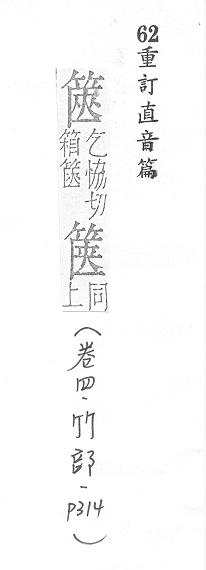 62重訂直音篇
篋
乞恊切
箱篋
篋
同
上
(卷四、竹部、p314)